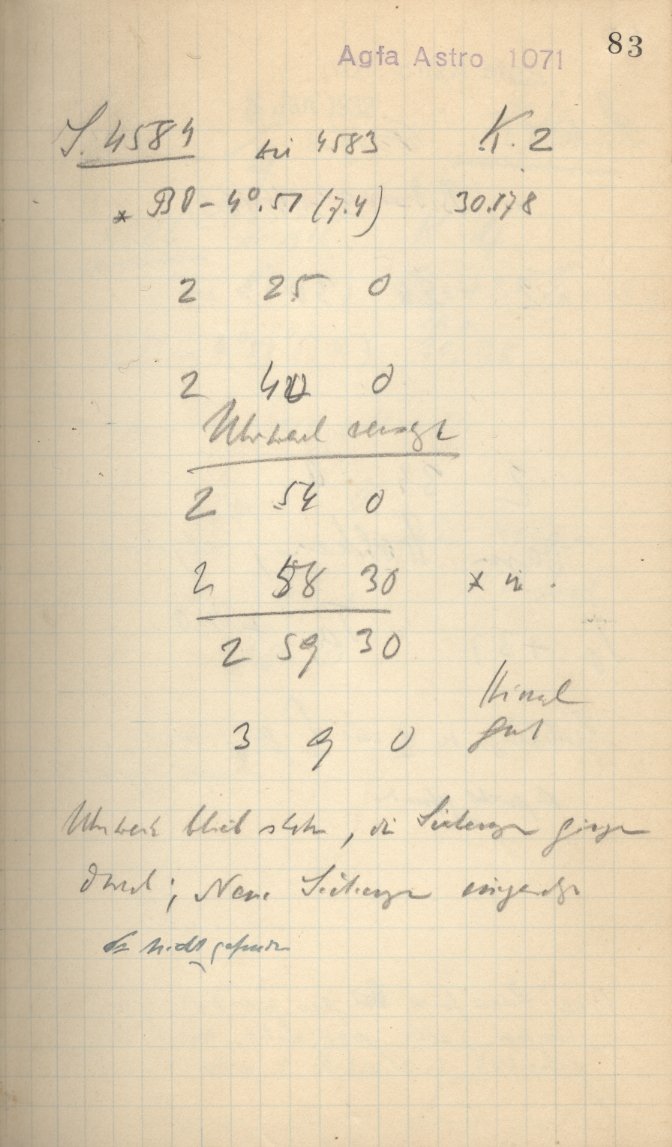 83
Agfa Astro 1071
S. 4584 bei 4583 K. 2
* BD - 4°.51 (7.4) 30.178
2 25 0
2 42 0
Uhrwerk versagt
2 54 0
2 58 30 * in .
2 59 30
Himmel
3 9 0 gut
Uhrwerk blieb stehn, die Sicherungen gingen
durch; Neue Sicherungen eingesetzt
nicht gefunden